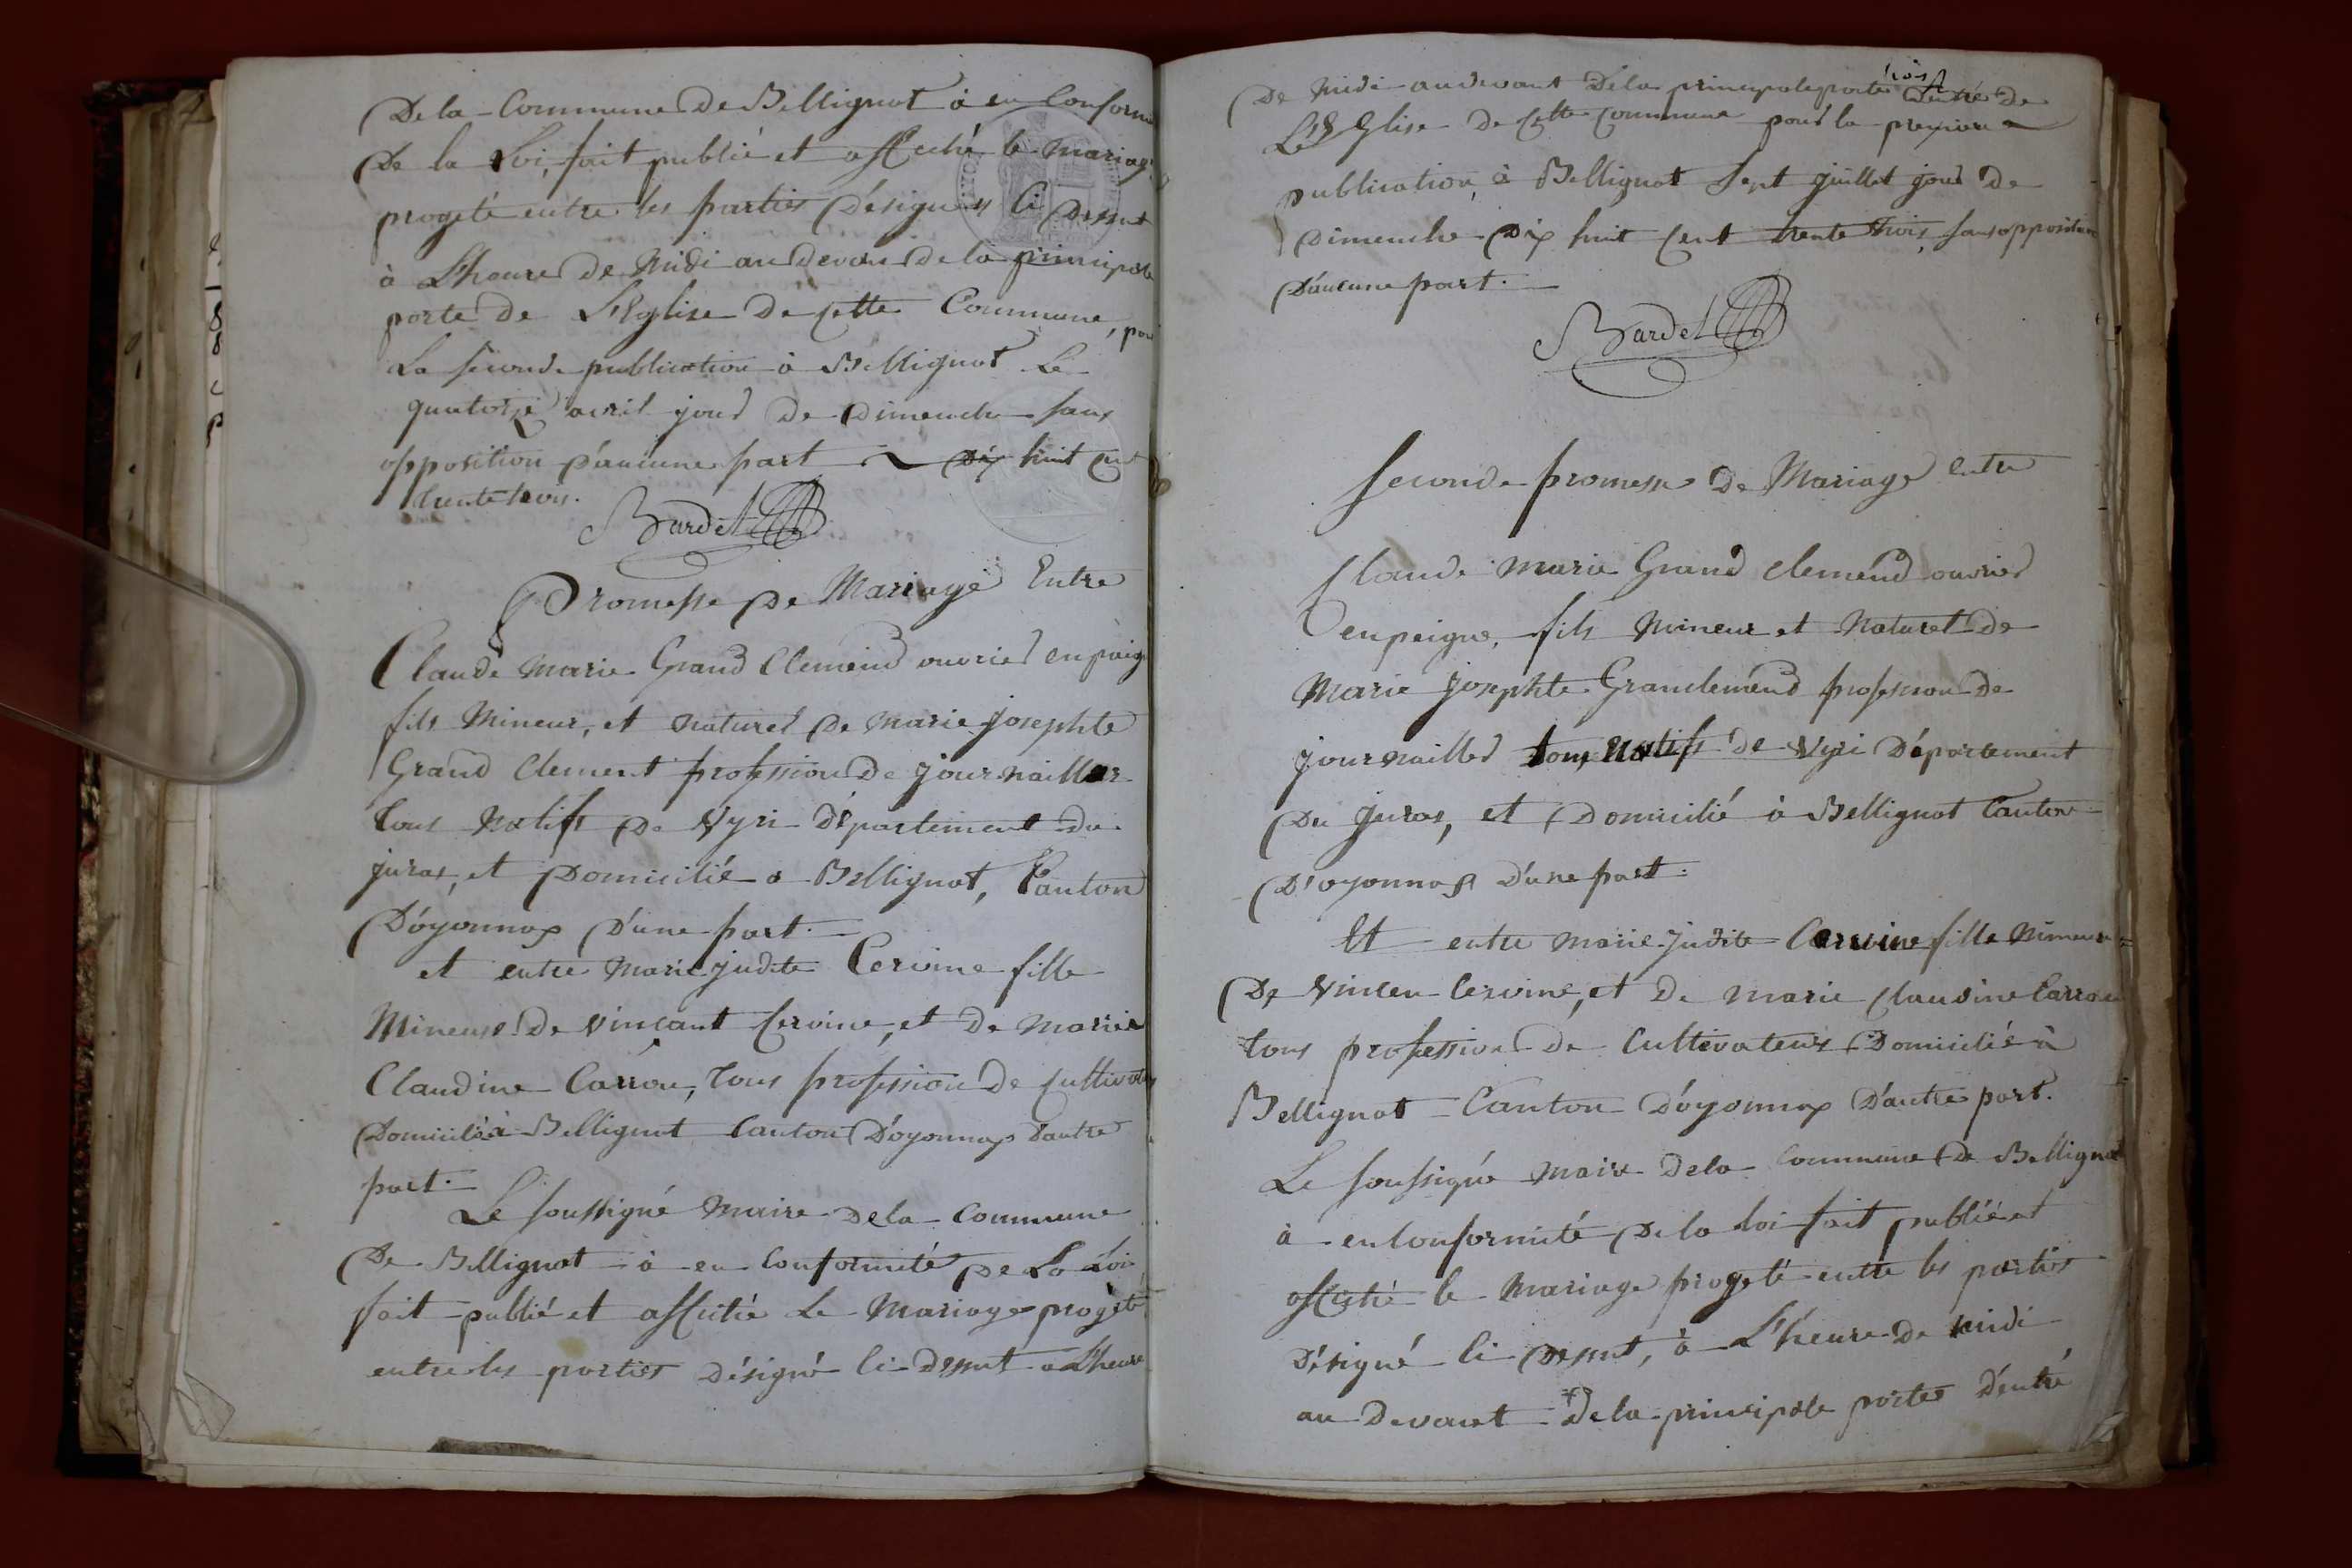 De la Commune de Bellignat à en Conform
De la Loi, fait publié et affiché le mariage
progeté entre les parties désignés Ci dessut
à L'heure de Midi au devant de la principale
porte de L'Eglise de Cette Commune, pour
La seconde publication à Bellignat Le
quatorze avril jour de dimenche sans
opposition d'aucune part dix huit cent
trente trois.
Bardet
Promesse de Mariage Entre
Claude Marie Grand Clemend ouvrier en paigne
fils Mineur, et naturel de marie josephte
Grand Clement profession de journailler
tous natifs de Vyri département du
juras, et domicilié a Bellignat, Canton
D'oyonnax d'une part.
et entre Marie judite Cervine fille
Mineure de vinçant Cervine, et de marie
Claudine Carron, tous profession de cultivateur
Domicilié à Bellignat Canton D'oyonnax d'autre
part.
Le soussigné Maire de la Commune
De Bellignat à en Conformité de La Loi
fait publié et affiché Le Mariage progeté
entre les parties désigné Ci dessut a L'heure
De Midi au devant De la principale porte d'entré de
L'Eglise de Cette Commune pour la premiere
publication, à Bellignat sept juillet jour de
Dimenche dix huit cent trente trois, sans opposition
D'aucune part.
Bardet
Seconde promesse de Mariage entre
Claude marie Grand clemend ouvrier
en peigne, fils Mineur et Naturel de
Marie josephte Granclemend profession de
journailler tous Natifs de Vyri Département
Du juras, et Domicilié à Bellignat Canton
D'oyonnax d'une part.
Et entre marie judite Cervine fille Mineure
De Vincen Cervine, et de marie Claudine Carron
tous profession de Cultivateurs Domicilié à
Bellignat Canton D'oyonnax D'autre part.
Le soussigné maire de la Commune de Bellignat
à en Conformité de la loi fait publié et
affiché le mariage progeté entre les parties
désigné Ci dessut, à L'heure de midi
au devant de la principale porte d'entré